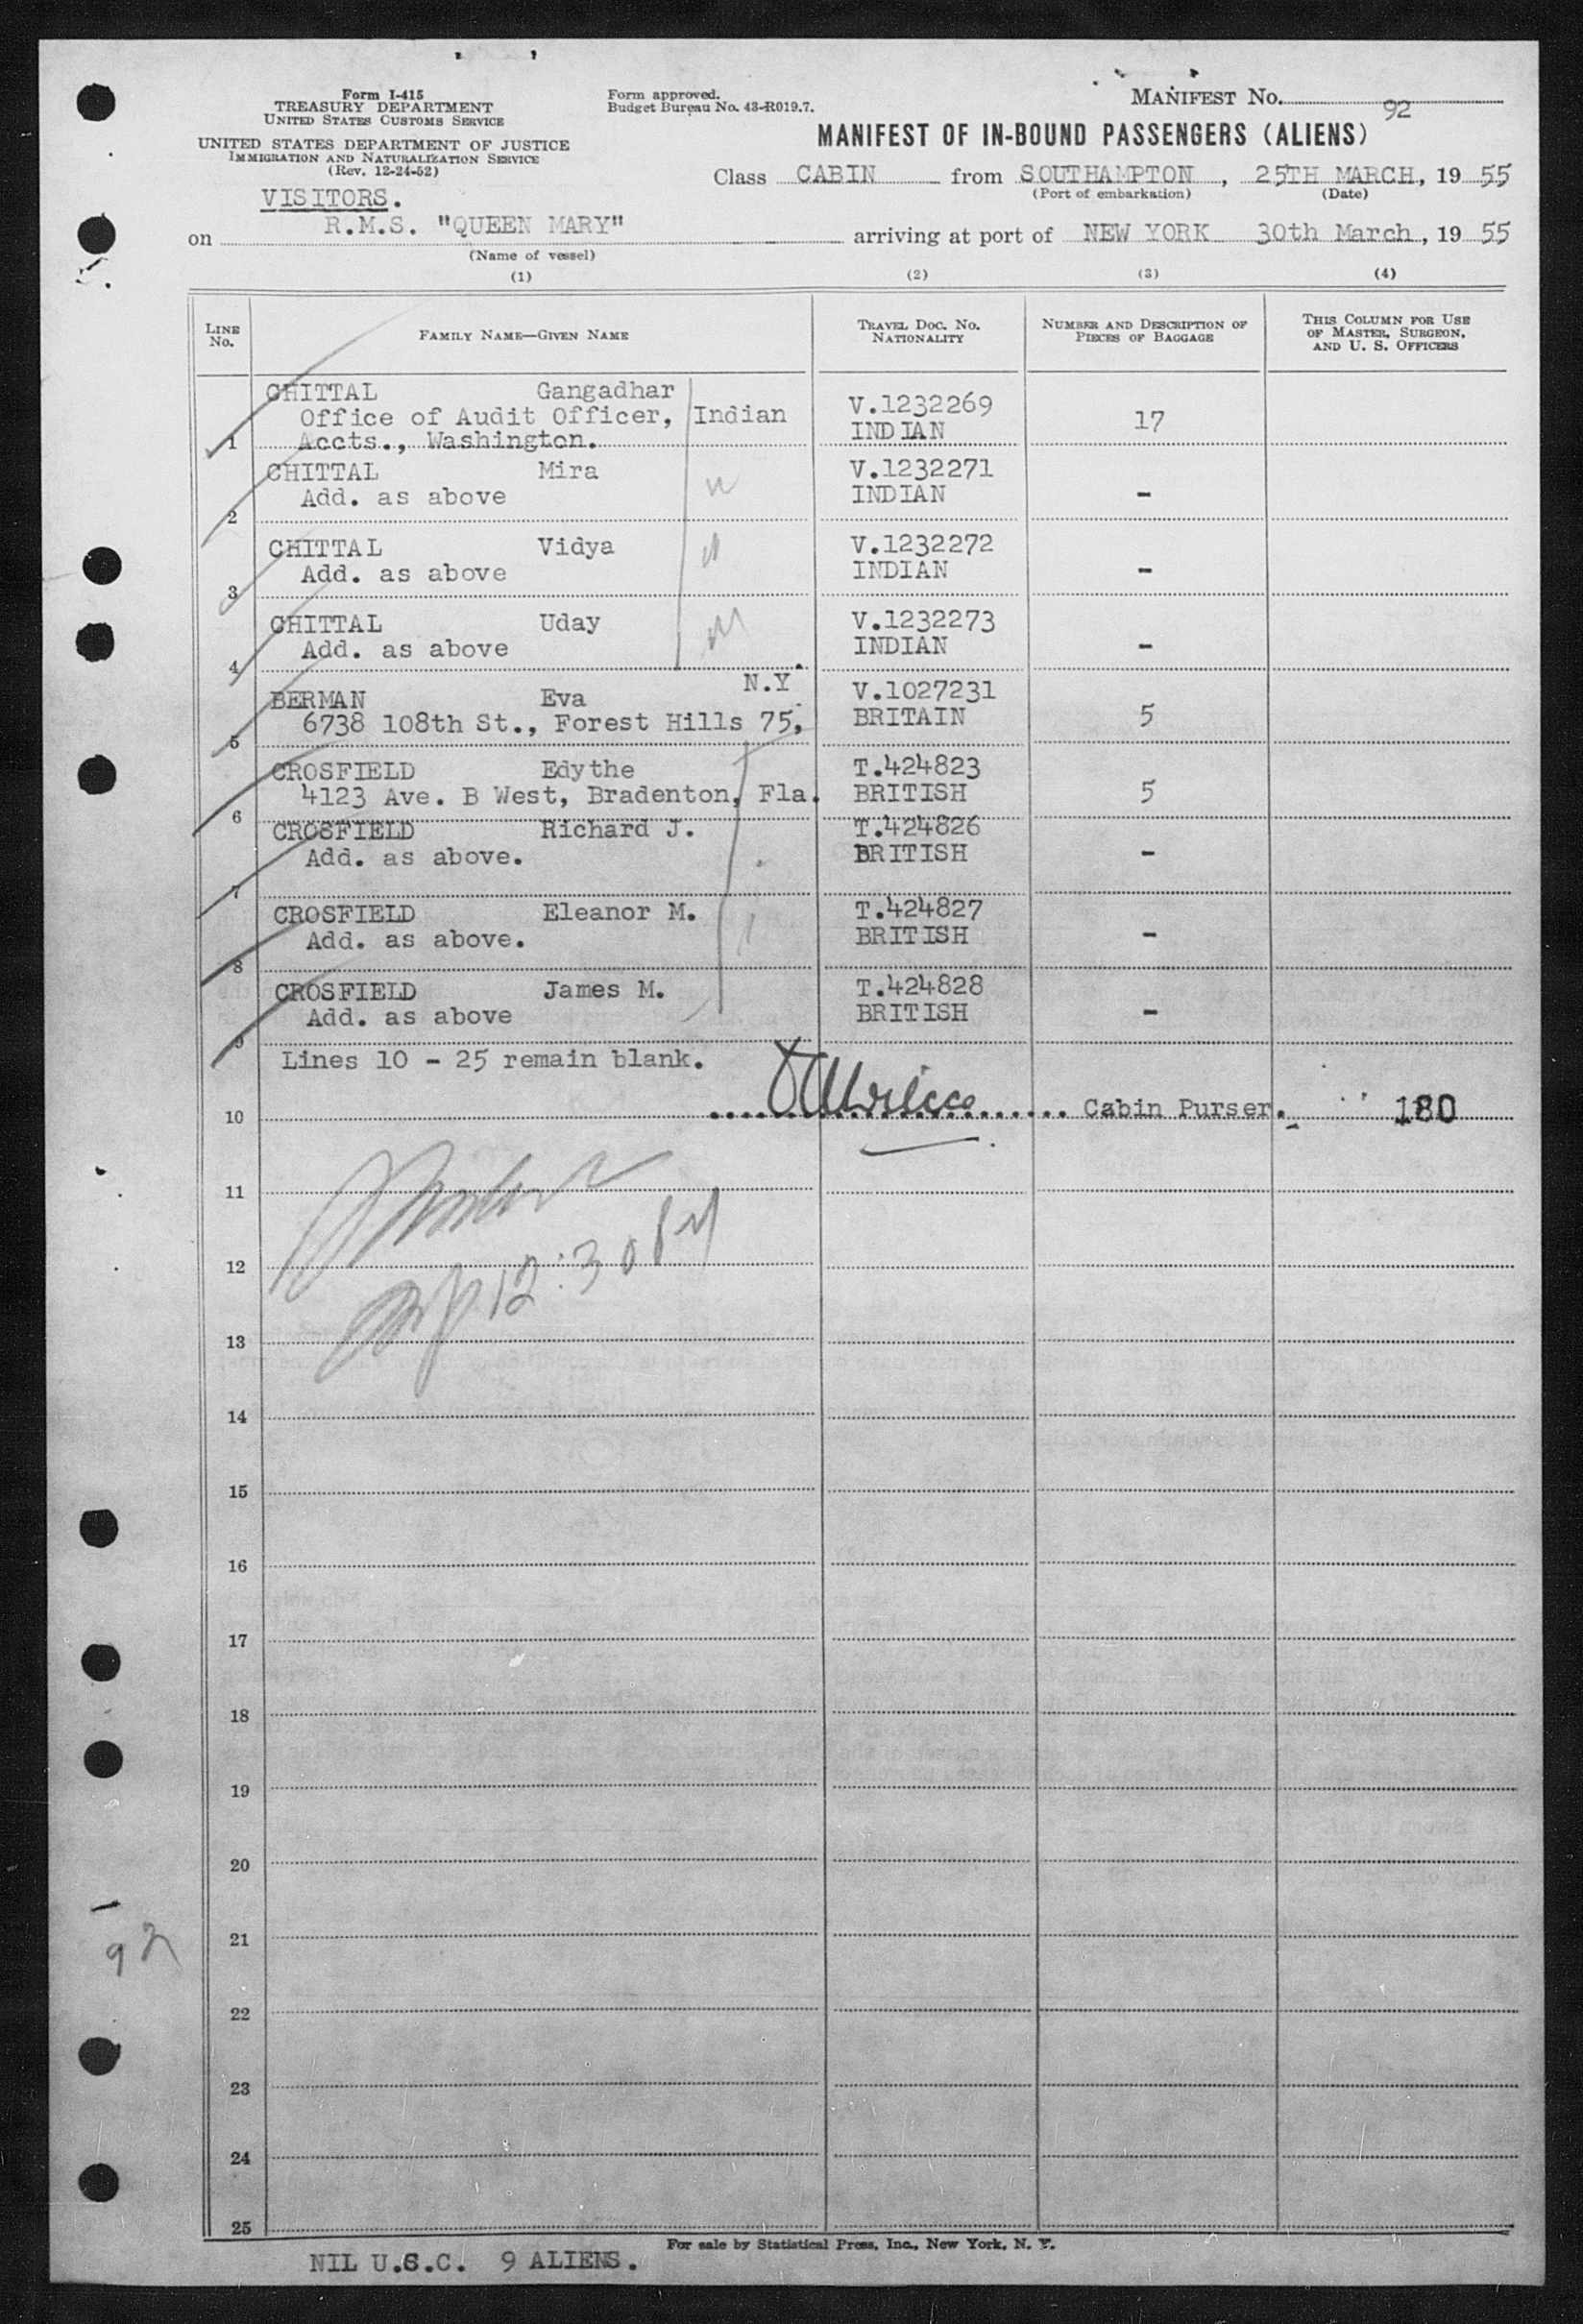 Form I-415
TREASURY DEPARTMENT
UNITED STATES CUSTOMS SERVICE
UNITED STATES DEPARTMENT OF JUSTICE
IMMIGRATION AND NATURALIZATION SERVICE
(Rev. 12-24-52)
Form approved.
Budget Bureau No. 43-R019.7.
MANIFEST No. 92
MANIFEST OF IN-BOUND PASSENGERS (ALIENS)
Class CABIN from SOUTHAMPTON, 25TH MARCH, 19 55
(Port of embarkation) (Date)
VISITORS.
on R.M.S. "QUEEN MARY" arriving at port of NEW YORK 30th March, 19 55
(Name of vessel)
(1) (2) (3) (4)
LINE No. FAMILY NAME—GIVEN NAME TRAVEL DOC. NO. NATIONALITY NUMBER AND DESCRIPTION OF PIECES OF BAGGAGE THIS COLUMN FOR USE OF MASTER, SURGEON, AND U. S. OFFICERS
CHITTAL Gangadhar V.1232269
Office of Audit Officer, Indian INDIAN 17
1 Accts., Washington.
CHITTAL Mira V.1232271
Add. as above INDIAN -
2
CHITTAL Vidya V.1232272
Add. as above INDIAN -
3
CHITTAL Uday V.1232273
Add. as above INDIAN -
4
N.Y.
BERMAN Eva V.1027231
6738 108th St., Forest Hills 75, BRITAIN 5
5
CROSFIELD Edythe T.424823
4123 Ave. B West, Bradenton, Fla. BRITISH 5
6
CROSFIELD Richard J. T.424826
Add. as above. BRITISH -
7
CROSFIELD Eleanor M. T.424827
Add. as above. BRITISH -
8
CROSFIELD James M. T.424828
Add. as above BRITISH -
9
Lines 10 - 25 remain blank.
10 Cabin Purser. 180
11
12
12:30 PM
13
14
15
16
17
18
19
20
21
92
22
23
24
25
For sale by Statistical Press, Inc., New York, N. Y.
NIL U.S.C. 9 ALIENS.